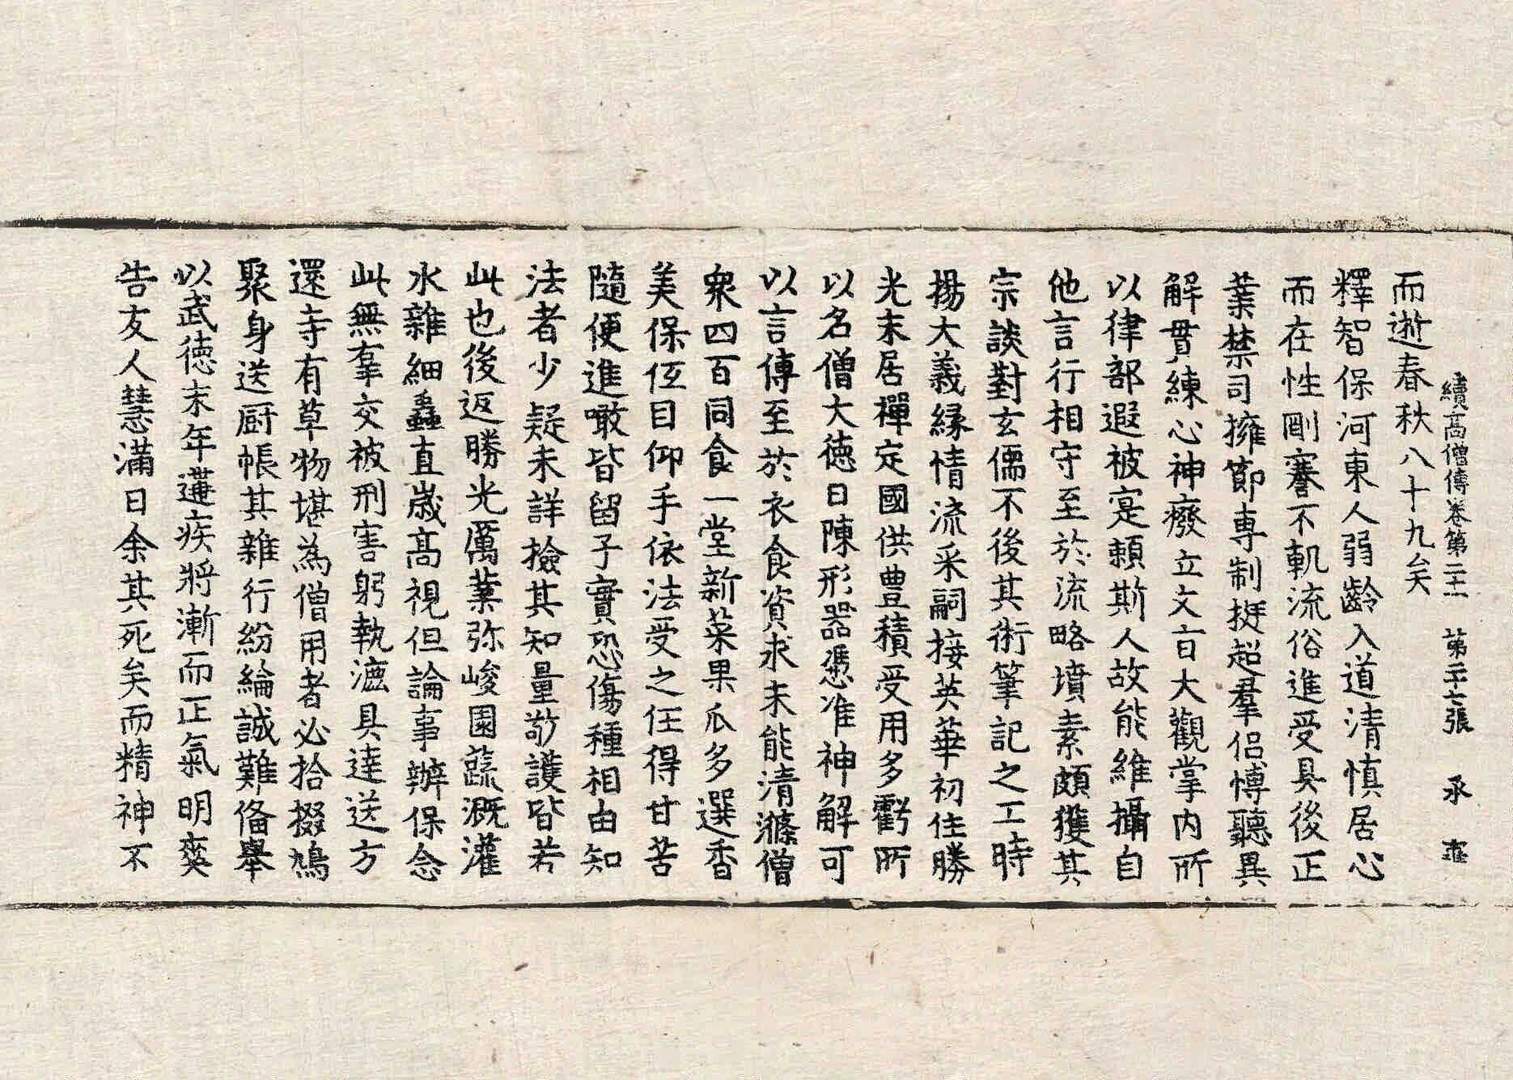 續高僧傳卷第二十二 第二十七張 承
而逝春秋八十九矣
釋智保河東人弱齡入道清慎居心
而在性剛謇不軌流俗進受具後正
業禁司擁節專制挺超羣侶博聽異
解貫練心神廢立文旨大觀掌內所
以律部遐被寔賴斯人故能維攝自
他言行相守至於流略墳素頗獲其
宗談對玄儒不後其術筆記之工時
揚大義緣情流采嗣接英華初住勝
光末居禪定國供豊積受用多虧所
以名僧大德日陳形器憑准神解可
以言傳至於衣食資求未能清滌僧
衆四百同食一堂新菜果瓜多選香
美保低目仰手依法受之任得甘苦
隨便進噉皆留子實恐傷種相由知
法者少疑未詳撿其知量敬護皆若
此也後返勝光厲業弥峻園蔬溉灌
水雜細蟲直歲高視但論事辦保念
此無辜交被刑害躬執漉具達送方
還寺有草物堪為僧用者必拾掇鳩
聚身送厨帳其雜行紛綸誠難俻舉
以武德末年遘疾將漸而正氣明爽
告友人慧滿曰余其死矣而精神不